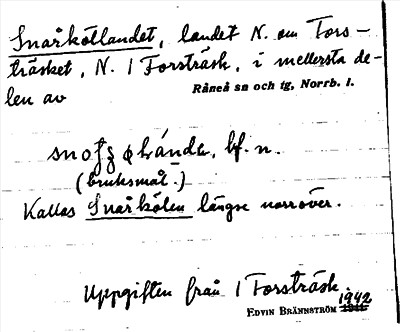 Snårkötlandet, landet N. om Fors-
träsket, N. 1 Forsträsk, i mellersta de-
Råneå sn och tg, Norrb. l.
len av
bf. n.
(bruksmål.)
Kallas Snårkölen längre norröver.
Uppgiften från 1 Forsträsk.
1942
EDVIN BRÄNNSTRÖM 1941